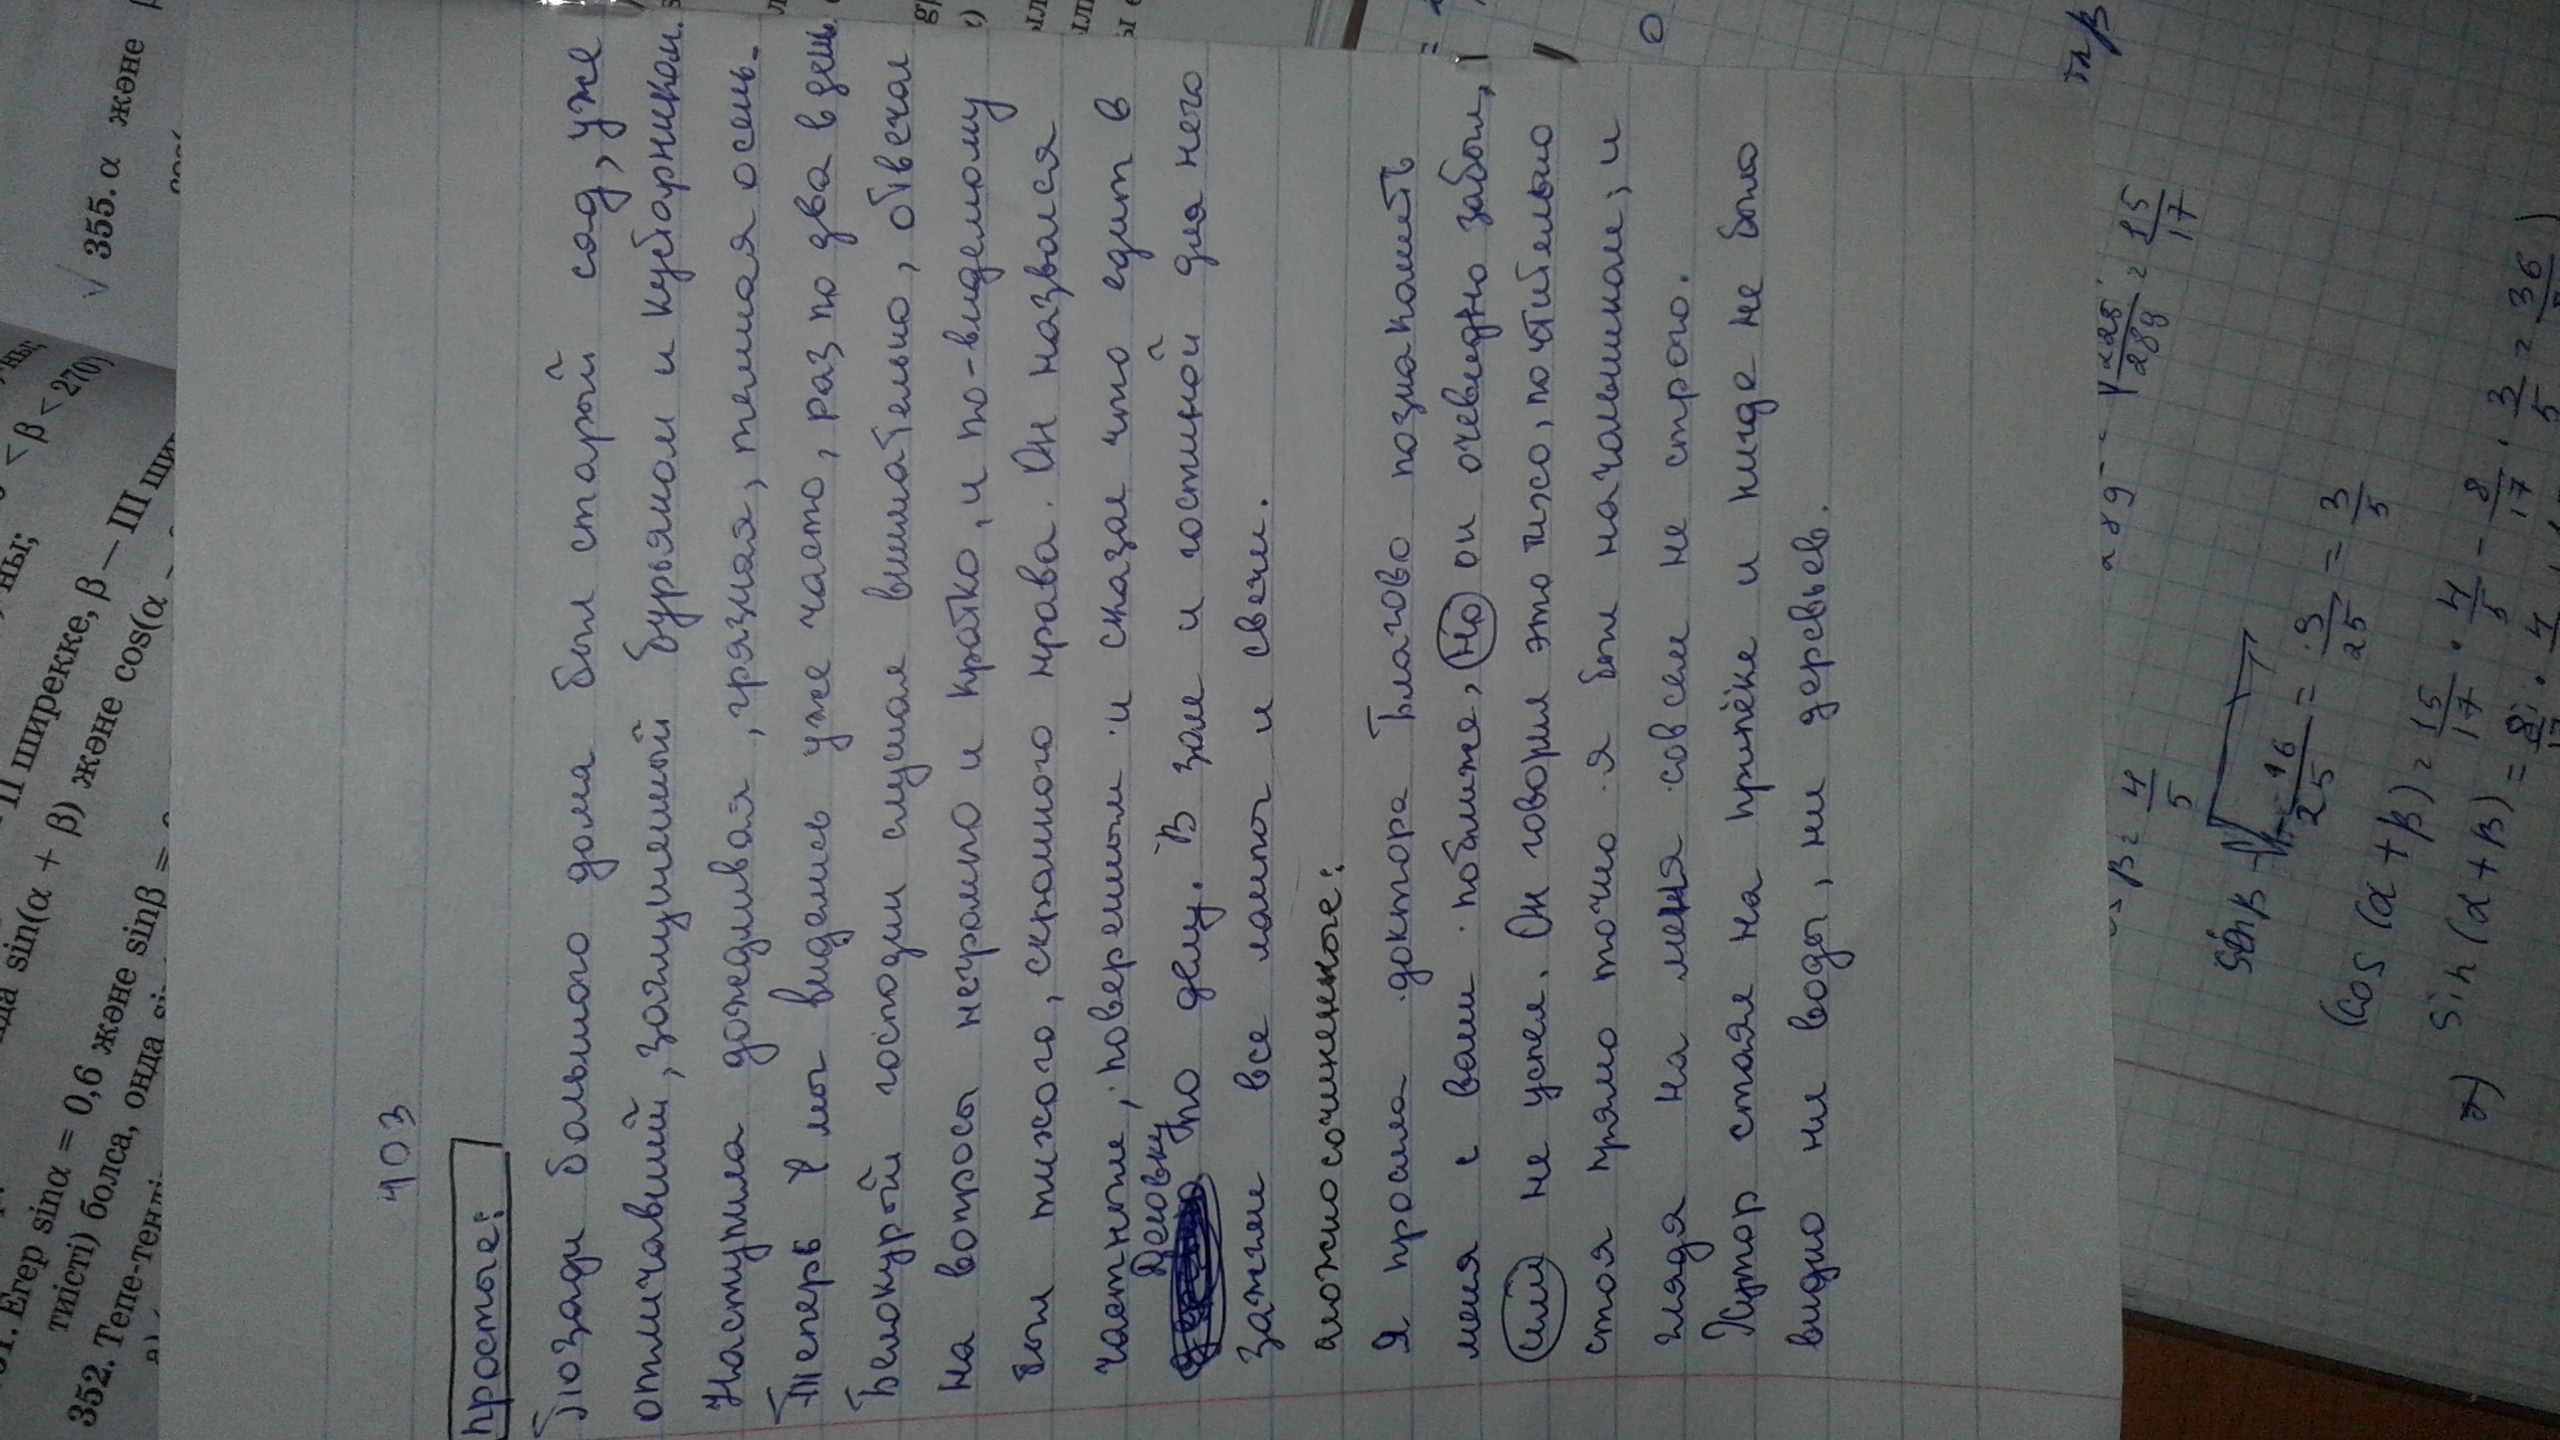 403
простые:
Позади большого дома был старый сад, уже
отличавший, заглушенный бурьяном и кустарником.
Наступила дождливая, грязная, темная осень.
Теперь мы виделись уже часто, раз по два в день.
Белокурый господин слушал внимательно, отвечал
на вопросы негромко и кратко, и по-видемому
был тихого, скромного нрава. Он назвался
частным, поверенным и сказал что едит в
Деловку
по делу. В зале и гостиной для него
зажгли все лампы и свечи.
сложносочиненные:
Я просила доктора Благово познакомить
меня с вами поближе, но он очевидно забыл,
или не успел. Он говорил это тихо, почтительно
стоя прямо точно я был начальником, и
глядя на меня совсем не строго.
Хутор стоял на припёке и нигде не было
видно ни воды, ни деревьев.
√ 355. α және
< β < 270)
II ширекке, β — III
sin(α + β) және cos(α −
Егер sinα = 0,6 және sinβ =
тиісті) болса, онда
352. Тепе-тең
β = 4/5
225/289 = 15/17
sin β
16/25 = 9/25 = 3/5
cos (α + β) = 15/17 · 4/5 − 8/17 · 3/5 = 36
2) sin (α + β) = 8/17 · 4